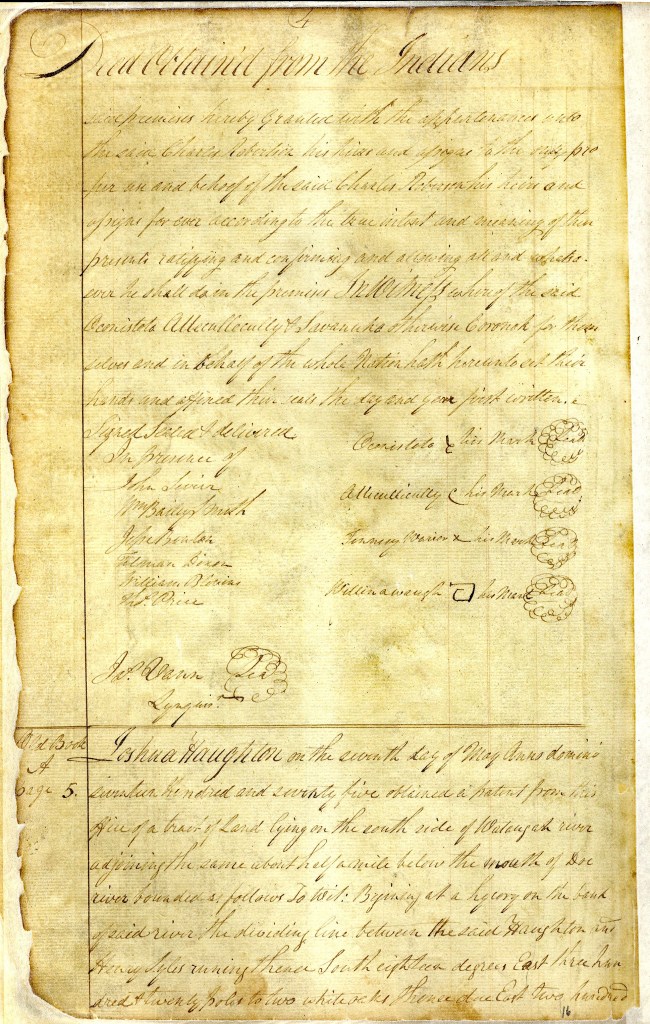 4
Deed Obtain'd from the Indians
said premises hereby Granted with the appurtenances unto
the said Charles Robertson his heirs and assigns to the only pro
per use and behoof of the said Charles Roberson his heirs and
assigns for ever according to the true intent and meaning of these
presents ratifying and confirming and allowing all and whatso-
ever he shall do in the premises In Witness whereof the said
Oconistoto Attucullocully & Savanuko otherwise Coronoh for them
selves and in behalf of the whole Nation hath hereunto set their
hands and affixed their seals the day and year first written
Signed Sealed & delivered
In presence of
Oconistoto his Mark Seal
John Sevier
Wm Bailey Smith
Attucullicully his Mark Seal
John
Tennesy Warior x his Mark Seal
Tilman Dixon
William Blevins
Willinawaugh his Mark Seal
Thos. Price
Jos. Vann Seal
Lynguisr.
Old Book
A
page 5.
Joshua Haughton on the seventh day of May Anno domini
seventeen hundred and seventy five obtained a patent from this
office of a tract of Land lying on the south side of Wataugah river
adjoining the same about half a mile below the mouth of Doe
river bounded as follows To Wit: Begining at a hycory on the bank
of said river the dividing line between the said Haughton and
Henry Lyles runing thence South eighteen degrees East three hun
dred & twenty poles to two white oaks thence due East two hundred
16